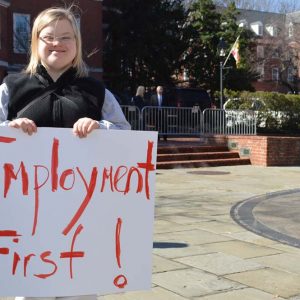 Employment
First!